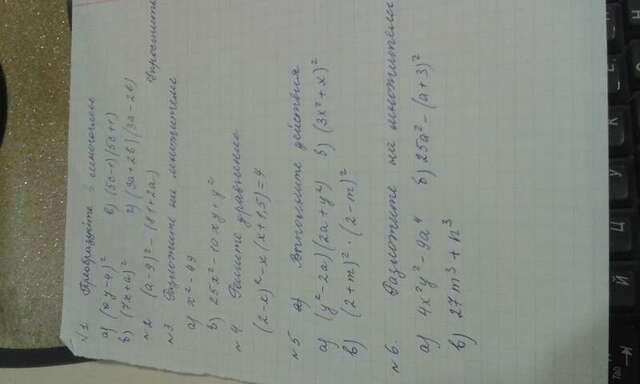 №1 Преобразуйте в многочлен
а) (y-4)² в) (5c-1)(5c+1)
б) (7x+a)² г) (3a+2b)(3a-2b)
№2 (a-9)² - (81+2a) Упростите
№3 Разложите на множители
а) x²-49
б) 25x²-10xy+y²
№4 Решите уравнение
(2-x)²-x(x+1,5)=4
№5 Выполните действия
а) (y²-2a)(2a+y²) б) (3x²+x)²
в) (2+m)²·(2-m)²
№6. Разложите на множители
а) 4x²y²-9a⁴ б) 25a²-(a+3)²
в) 27m³+n³
Tab Й Ц У К